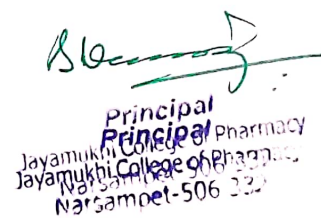 Principal
Principal
Jayamukhi College of Pharmacy
Jayamukhi College of Pharmacy
Narsampet-506
Narsampet-506 332